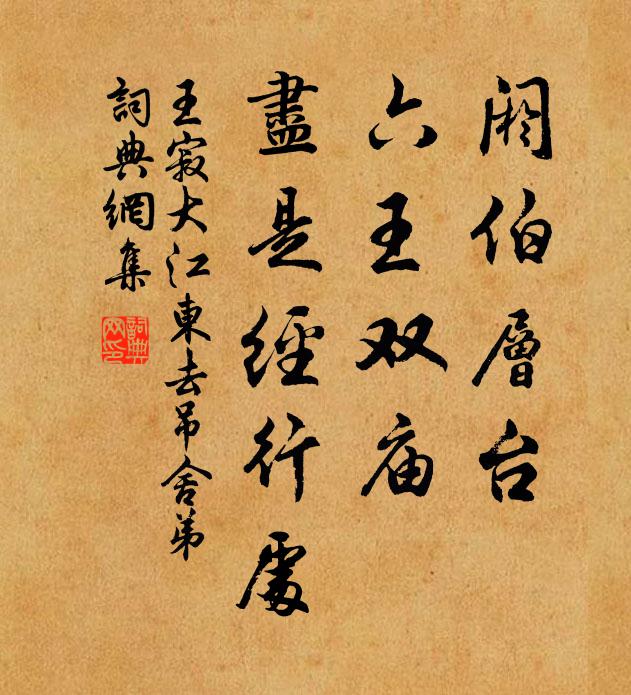 阏伯層台
六王双庙
盡是經行處
王寂大江東去吊舍弟
詞典網集
詞典網印